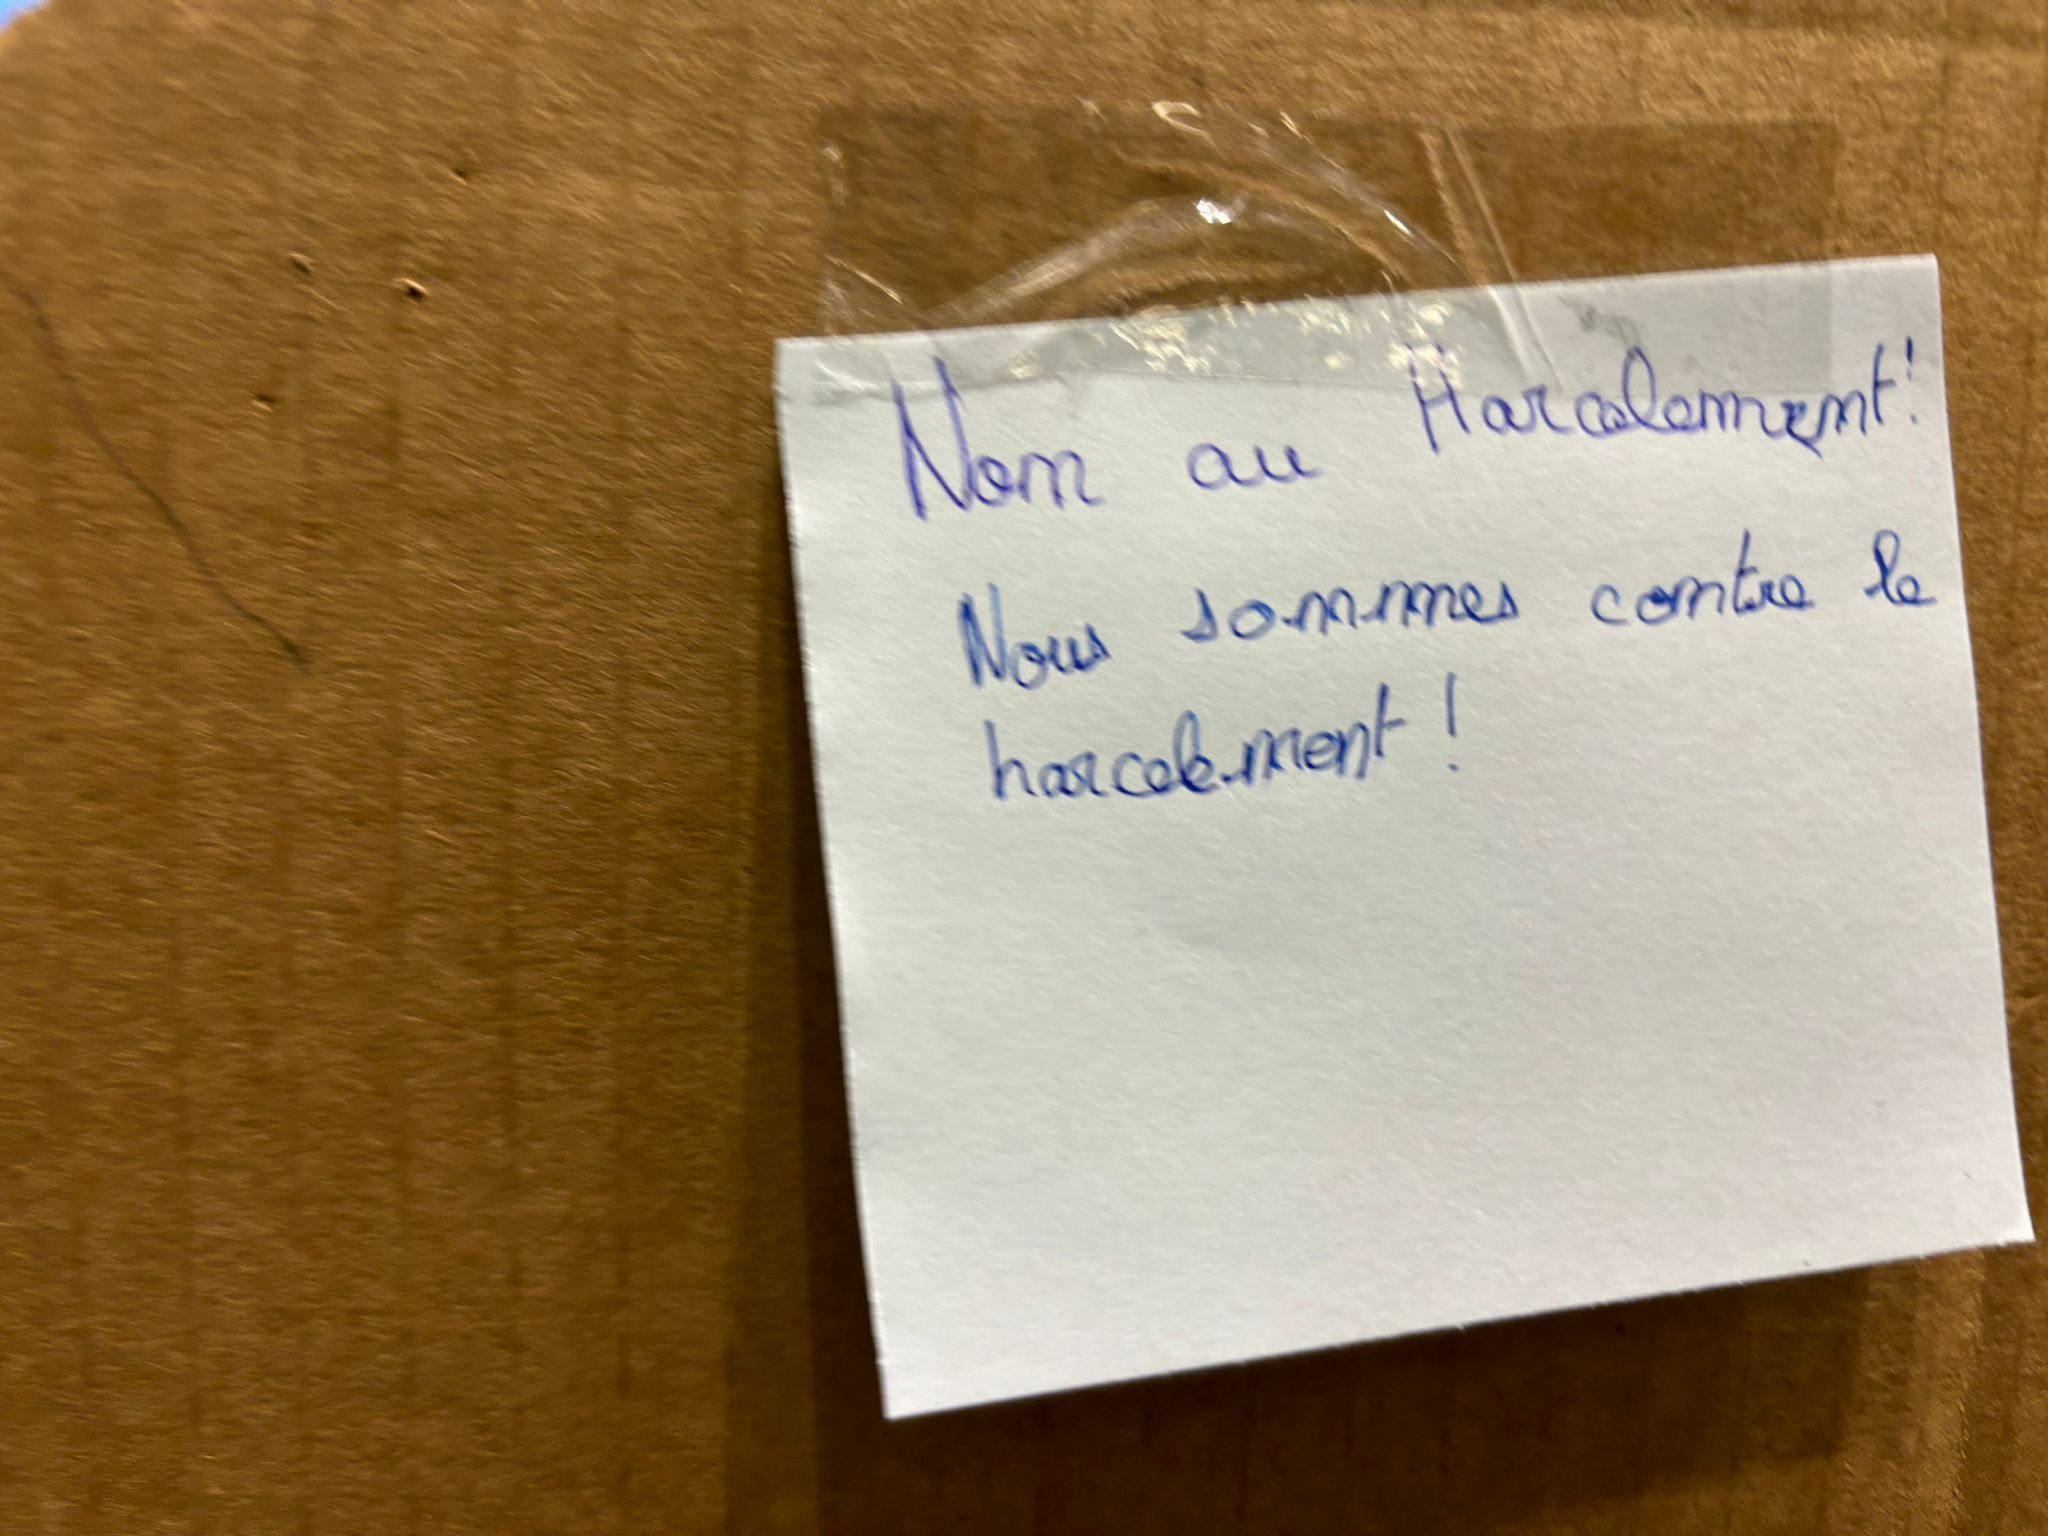 Non au Harcelement!
Nous sommes contre le
harcelement !